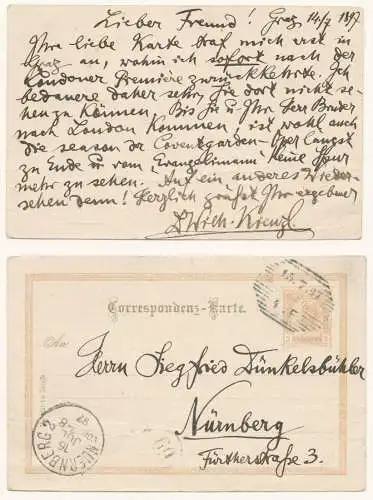 Lieber Freund! Graz 14/7 1897
Ihre liebe Karte traf mich erst in
Graz an, wohin ich sofort nach der
Londoner Première zurückkehrte. Ich
bedauere daher sehr, Sie dort nicht se-
hen zu können. Bis Sie u. Ihr Herr Bruder
nach London kommen, ist wohl auch
die season der Coventgarden-Oper längst
zu Ende u. vom „Evangelimann" keine Spur
mehr zu sehen. Auf ein anderes Wieder-
sehen denn! Herzlich grüßt Ihr ergebener
Dr Wilh. Kienzl
15.7.97
Correspondenz-Karte.
An
Herrn Siegfried Dünkelsbühler
Nürnberg
Fürtherstraße 3.
NUERNBERG 2
16
JUL
97